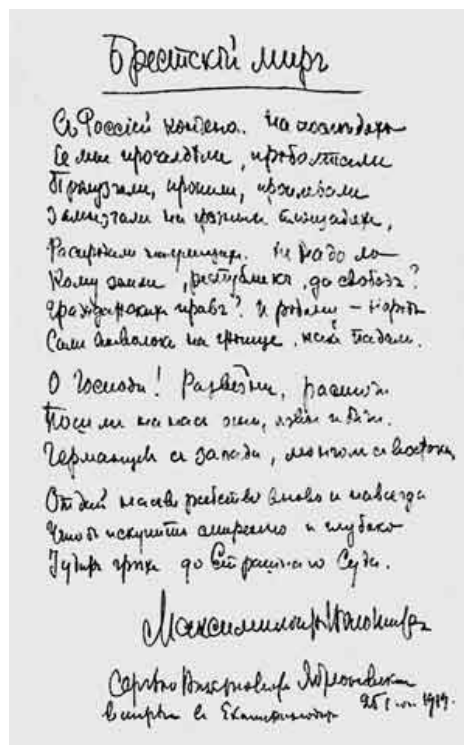 Брестскій миръ
Съ Россіей кончено. На послѣдяхъ
Ее мы прогалдѣли, проболтали
Пролузгали, пропили, проплевали
Замызгали на грязныхъ площадяхъ,
Распродали на улицахъ. Не надо ль
Кому земли, республикъ, да свободъ?
Гражданскихъ правъ? И родину – народъ
Самъ выволокъ на гноище, какъ падаль.
О Господи! Разверзни, расточи
Пошли на насъ огнь, язвы и бичи.
Германцевъ съ запада, монголъ съ востока,
Отдай насъ въ рабство вновь и навсегда
Чтобъ искупить смиренно и глубоко
Іудинъ грѣхъ до Страшнаго Суда.
Максимиліанъ Волошинъ
Сергѣю Викторовичу Яблоновскому
въ Екатеринодарѣ 25 1919.